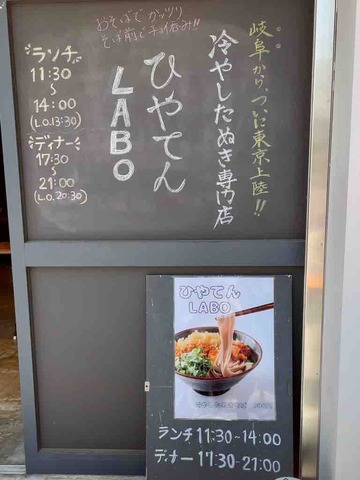 おそばでガッツリ
そば前でチョイ呑み!!
岐阜から、ついに東京上陸!!
冷やしたぬき専門店
ひやてん
LABO
ランチ
11:30
~
14:00
(L.O.13:30)
ディナー
17:30
~
21:00
(L.O.20:30)
ひやてん
LABO
ランチ 11:30~14:00
ディナー 17:30~21:00